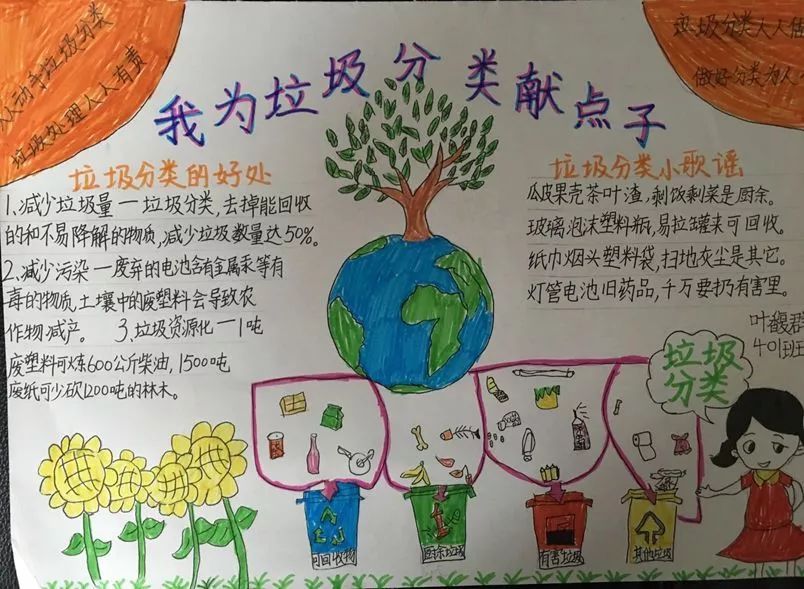 人人动手垃圾分类
垃圾处理人人有责
垃圾分类人人做
做好分类为人
我为垃圾分类献点子
垃圾分类的好处
1、减少垃圾量—垃圾分类，去掉能回收
的和不易降解的物质，减少垃圾数量达50%。
2、减少污染—废弃的电池含有金属汞等有
毒的物质，土壤中的废塑料会导致农
作物减产。 3、垃圾资源化—1吨
废塑料可炼600公斤柴油，1500吨
废纸可少砍1200吨的林木。
垃圾分类小歌谣
瓜皮果壳茶叶渣，剩饭剩菜是厨余。
玻璃泡沫塑料瓶，易拉罐来可回收。
纸巾烟头塑料袋，扫地灰尘是其它。
灯管电池旧药品，千万要扔有害里。
叶馥群
401班
垃圾
分类
可回收物
厨余垃圾
有害垃圾
其他垃圾